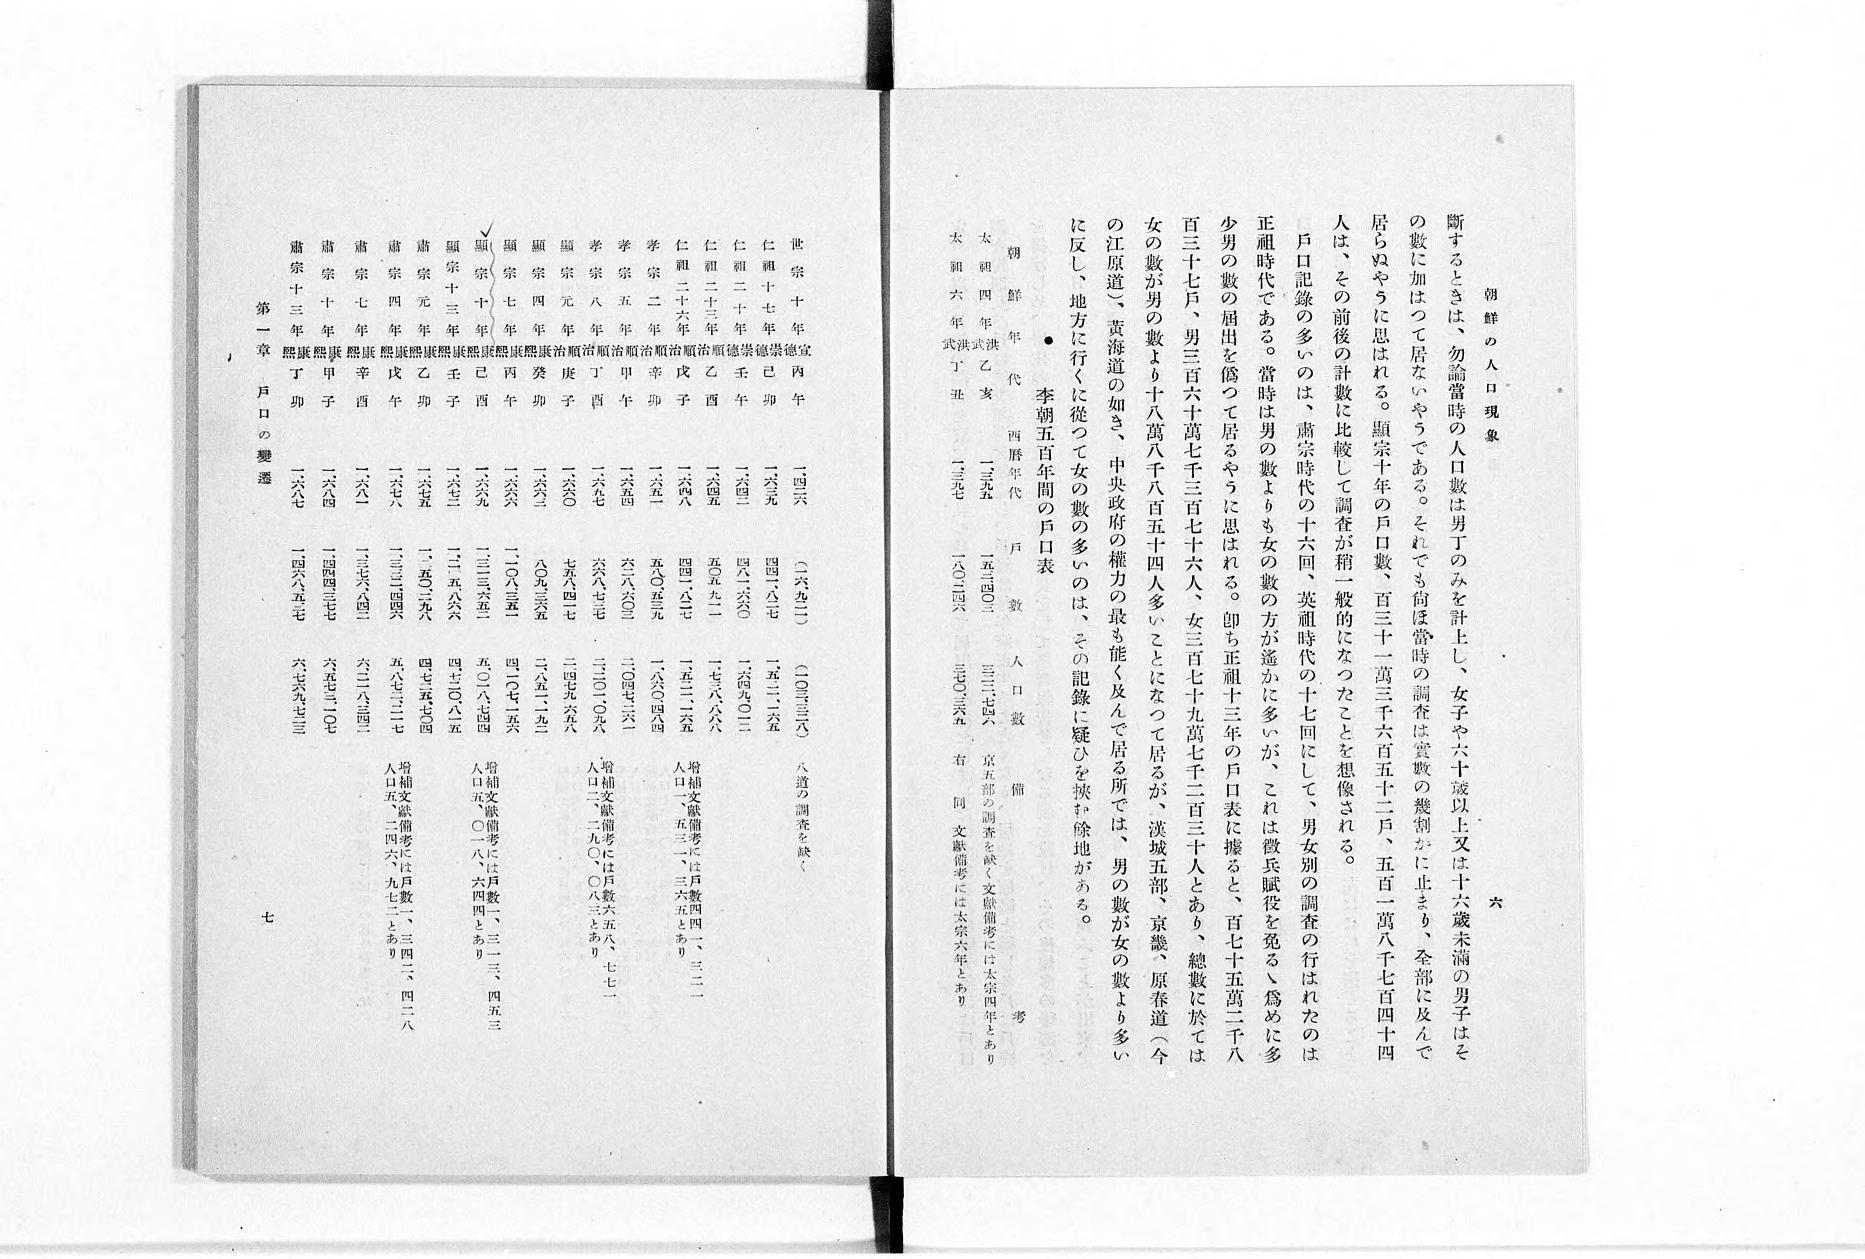 朝鮮の人口現象
六
斷するときは、勿論當時の人口數は男丁のみを計上し、女子や六十歲以上又は十六歲未滿の男子はそ
の數に加はつて居ないやうである。それでも尙ほ當時の調査は實數の幾割かに止まり、全部に及んで
居らぬやうに思はれる。顯宗十年の戶口數、百三十一萬三千六百五十二戶、五百一萬八千七百四十四
人は、その前後の計數に比較して調査が稍一般的になつたことを想像される。
戶口記錄の多いのは、肅宗時代の十六回、英祖時代の十七回にして、男女別の調査の行はれたのは
正祖時代である。當時は男の數よりも女の數の方が遙かに多いが、これは徵兵賦役を免るゝ爲めに多
少男の數の屆出を僞つて居るやうに思はれる。卽ち正祖十三年の戶口表に據ると、百七十五萬二千八
百三十七戶、男三百六十萬七千三百七十六人、女三百七十九萬七千二百三十人とあり、總數に於ては
女の數が男の數より十八萬八千八百五十四人多いことになつて居るが、漢城五部、京畿、原春道（今
の江原道）、黃海道の如き、中央政府の權力の最も能く及んで居る所では、男の數が女の數より多い
に反し、地方に行くに從つて女の數の多いのは、その記錄に疑ひを挾む餘地がある。
● 李朝五百年間の戶口表
朝鮮年代 西曆年代 戶數 人口數 備考
太祖四年 洪武乙亥 一、三九五 一五三、四〇三 三二二、七四六 京五部の調査を缺く文獻備考には太宗四年とあり
太祖六年 洪武丁丑 一、三九七 一八〇、二四六 三七〇、三六五 右同 文獻備考には太宗六年とあり
世宗十年 宣德丙午 一、四二六 （一六、九二一） （一〇三、三二八） 八道の調査を缺く
仁祖十七年 崇德己卯 一、六三九 四四一、八二七 一、五二一、一六五
仁祖二十年 崇德壬午 一、六四二 四八一、六六〇 一、六四九、〇一二
仁祖二十三年 順治乙酉 一、六四五 五〇五、九一一 一、七三八、八八八
仁祖二十六年 順治戊子 一、六四八 四四一、八二七 一、五二一、一六五 增補文獻備考には戶數四四一、三二一
人口一、五三一、三六五とあり
孝宗二年 順治辛卯 一、六五一 五八〇、五三九 一、八六〇、四八四
孝宗五年 順治甲午 一、六五四 六二八、六〇三 二、〇四七、二六一
孝宗八年 順治丁酉 一、六九七 六六八、七三七 二、二〇一、〇九八 增補文獻備考には戶數六五八、七七一
人口二、二九〇、〇八三とあり
顯宗元年 順治庚子 一、六六〇 七五八、四一七 二、四七九、六五八
顯宗四年 康熙癸卯 一、六六三 八〇九、三六五 二、八五一、一九二
顯宗七年 康熙丙午 一、六六六 一、一〇八、三五一 四、一〇七、一五六
顯宗十年 康熙己酉 一、六六九 一、三一三、六五二 五、〇一八、七四四 增補文獻備考には戶數一、三一三、四五三
人口五、〇一八、六四四とあり
顯宗十三年 康熙壬子 一、六七二 一、二一五、八六六 四、七二〇、八一五
肅宗元年 康熙乙卯 一、六七五 一、二五〇、二九八 四、七二五、七〇四
肅宗四年 康熙戊午 一、六七八 一、三三二、四四六 五、八七二、二一七 增補文獻備考には戶數一、三四二、四二八
人口五、二四六、九七二とあり
肅宗七年 康熙辛酉 一、六八一 一、三七六、八四二 六、二一八、三四二
肅宗十年 康熙甲子 一、六八四 一、四四四、三七七 六、五七三、一〇七
肅宗十三年 康熙丁卯 一、六八七 一、四六八、五三七 六、七六九、七二三
第一章 戶口の變遷
七